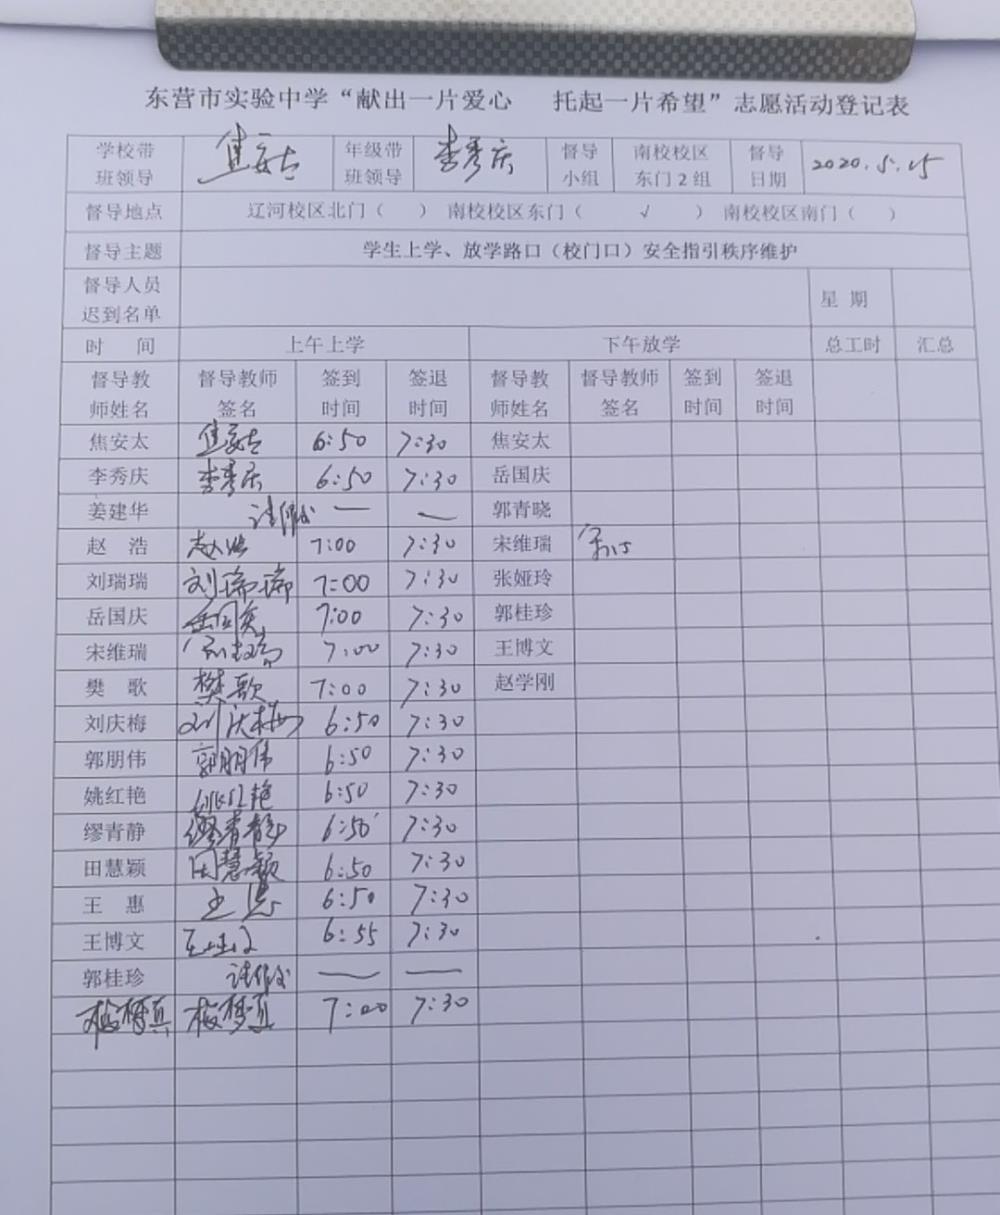 东营市实验中学“献出一片爱心 托起一片希望”志愿活动登记表
学校带班领导 焦安太 年级带班领导 李秀庆 督导小组 南校校区东门2组 督导日期 2020.5.15
督导地点 辽河校区北门（ ） 南校校区东门（ √ ） 南校校区南门（ ）
督导主题 学生上学、放学路口（校门口）安全指引秩序维护
督导人员迟到名单 星 期
时 间 上午上学 下午放学 总工时 汇总
督导教师姓名 督导教师签名 签到时间 签退时间 督导教师姓名 督导教师签名 签到时间 签退时间
焦安太 焦安太 6:50 7:30 焦安太
李秀庆 李秀庆 6:50 7:30 岳国庆
姜建华 请假 — — 郭青晓
赵 浩 赵浩 7:00 7:30 宋维瑞
刘瑞瑞 刘瑞瑞 7:00 7:30 张娅玲
岳国庆 岳国庆 7:00 7:30 郭桂珍
宋维瑞 宋维瑞 7:00 7:30 王博文
樊 歌 樊歌 7:00 7:30 赵学刚
刘庆梅 刘庆梅 6:50 7:30
郭朋伟 郭朋伟 6:50 7:30
姚红艳 姚红艳 6:50 7:30
缪青静 缪青静 6:50 7:30
田慧颖 田慧颖 6:50 7:30
王 惠 王惠 6:50 7:30
王博文 王博文 6:55 7:30
郭桂珍 请假 — —
7:00 7:30